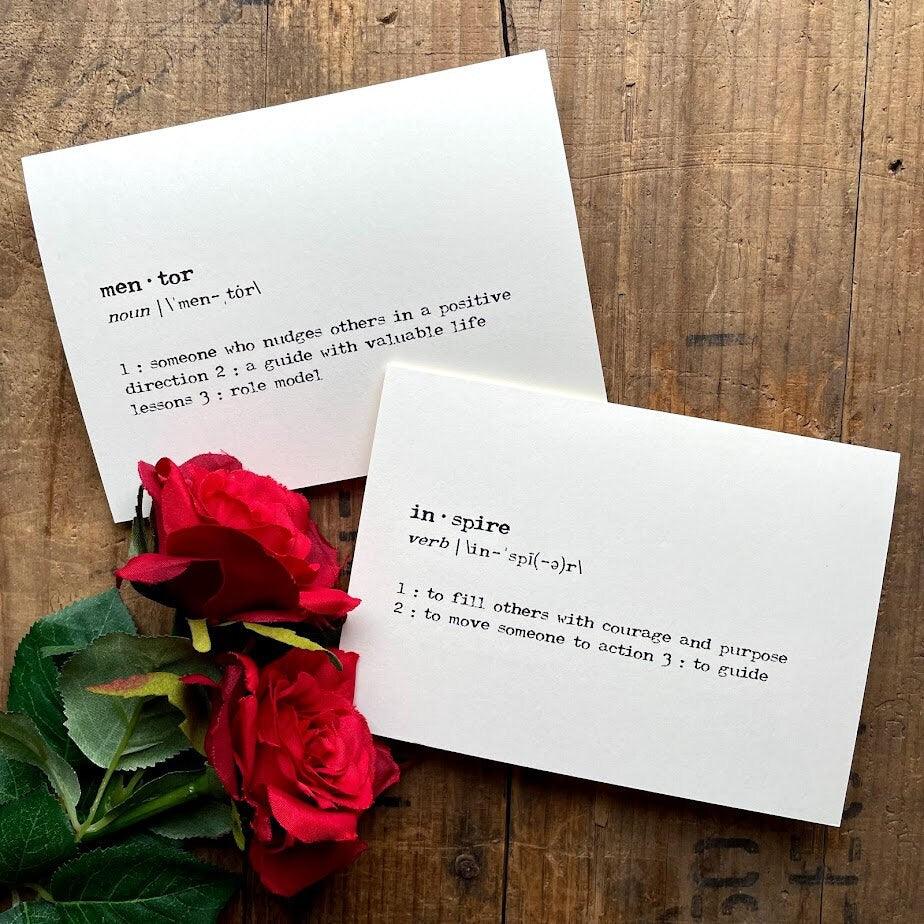 men·tor
noun | \ˈmen-ˌtȯr\
1 : someone who nudges others in a positive
direction 2 : a guide with valuable life
lessons 3 : role model
in·spire
verb | \in-ˈspī(-ə)r\
1 : to fill others with courage and purpose
2 : to move someone to action 3 : to guide